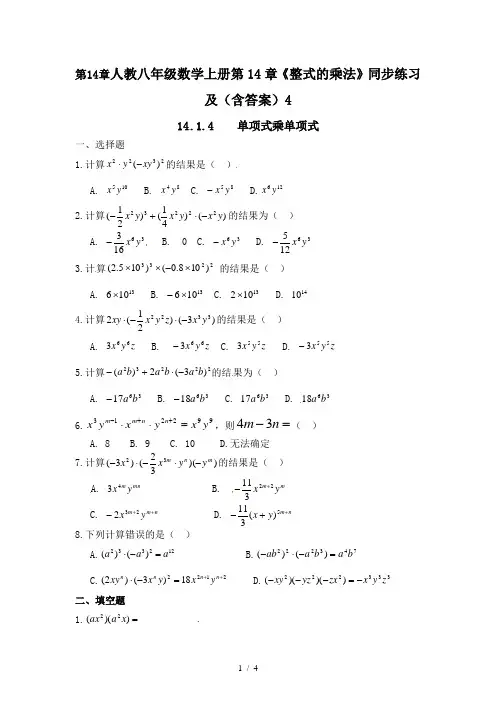 第14章人教八年级数学上册第14章《整式的乘法》同步练习
及（含答案）4
14.1.4 单项式乘单项式
一、选择题
1.计算 x²y²·(-xy³)² 的结果是（ ）
A. x⁵y¹⁰ B. x⁴y⁸ C. -x⁵y⁸ D. x⁶y¹²
2.计算 (-1/2 x²y)³+(1/4 x²y)²·(-x²y) 的结果为（ ）
A. -3/16 x⁶y³ B. 0 C. -x⁶y³ D. -5/12 x⁶y³
3.计算 (2.5×10³)³×(-0.8×10²)² 的结果是（ ）
A. 6×10¹³ B. -6×10¹³ C. 2×10¹³ D. 10¹⁴
4.计算 2xy·(-1/2 x²y²z)·(-3x³y³) 的结果是（ ）
A. 3x⁶y⁶z B. -3x⁶y⁶z C. 3x⁵y⁵z D. -3x⁵y⁵z
5.计算 -(a²b)³+2a²b·(-3a²b)² 的结果为（ ）
A. -17a⁶b³ B. -18a⁶b³ C. 17a⁶b³ D. 18a⁶b³
6. x³y^(m-1)·x^(m+n)·y^(2n+2)=x⁹y⁹，则4m-3n=（ ）
A. 8 B. 9 C. 10 D.无法确定
7.计算 (-3x²)·(-2/3 x^(3m)·yⁿ)(-y^m) 的结果是（ ）
A. 3x^(4m)y^(mn) B. -11/3 x^(2m+2)y^m
C. -2x^(3m+2)y^(m+n) D. -11/3 (x+y)^(5m+n)
8.下列计算错误的是（ ）
A.(a²)³·(-a³)²=a¹² B.(-ab²)²·(-a²b³)=a⁴b⁷
C.(2xyⁿ)·(-3xⁿy)²=18x^(2n+1)y^(n+2) D.(-xy²)(-yz²)(-zx²)=-x³y³z³
二、填空题
1.(ax²)(a²x)=
1 / 4